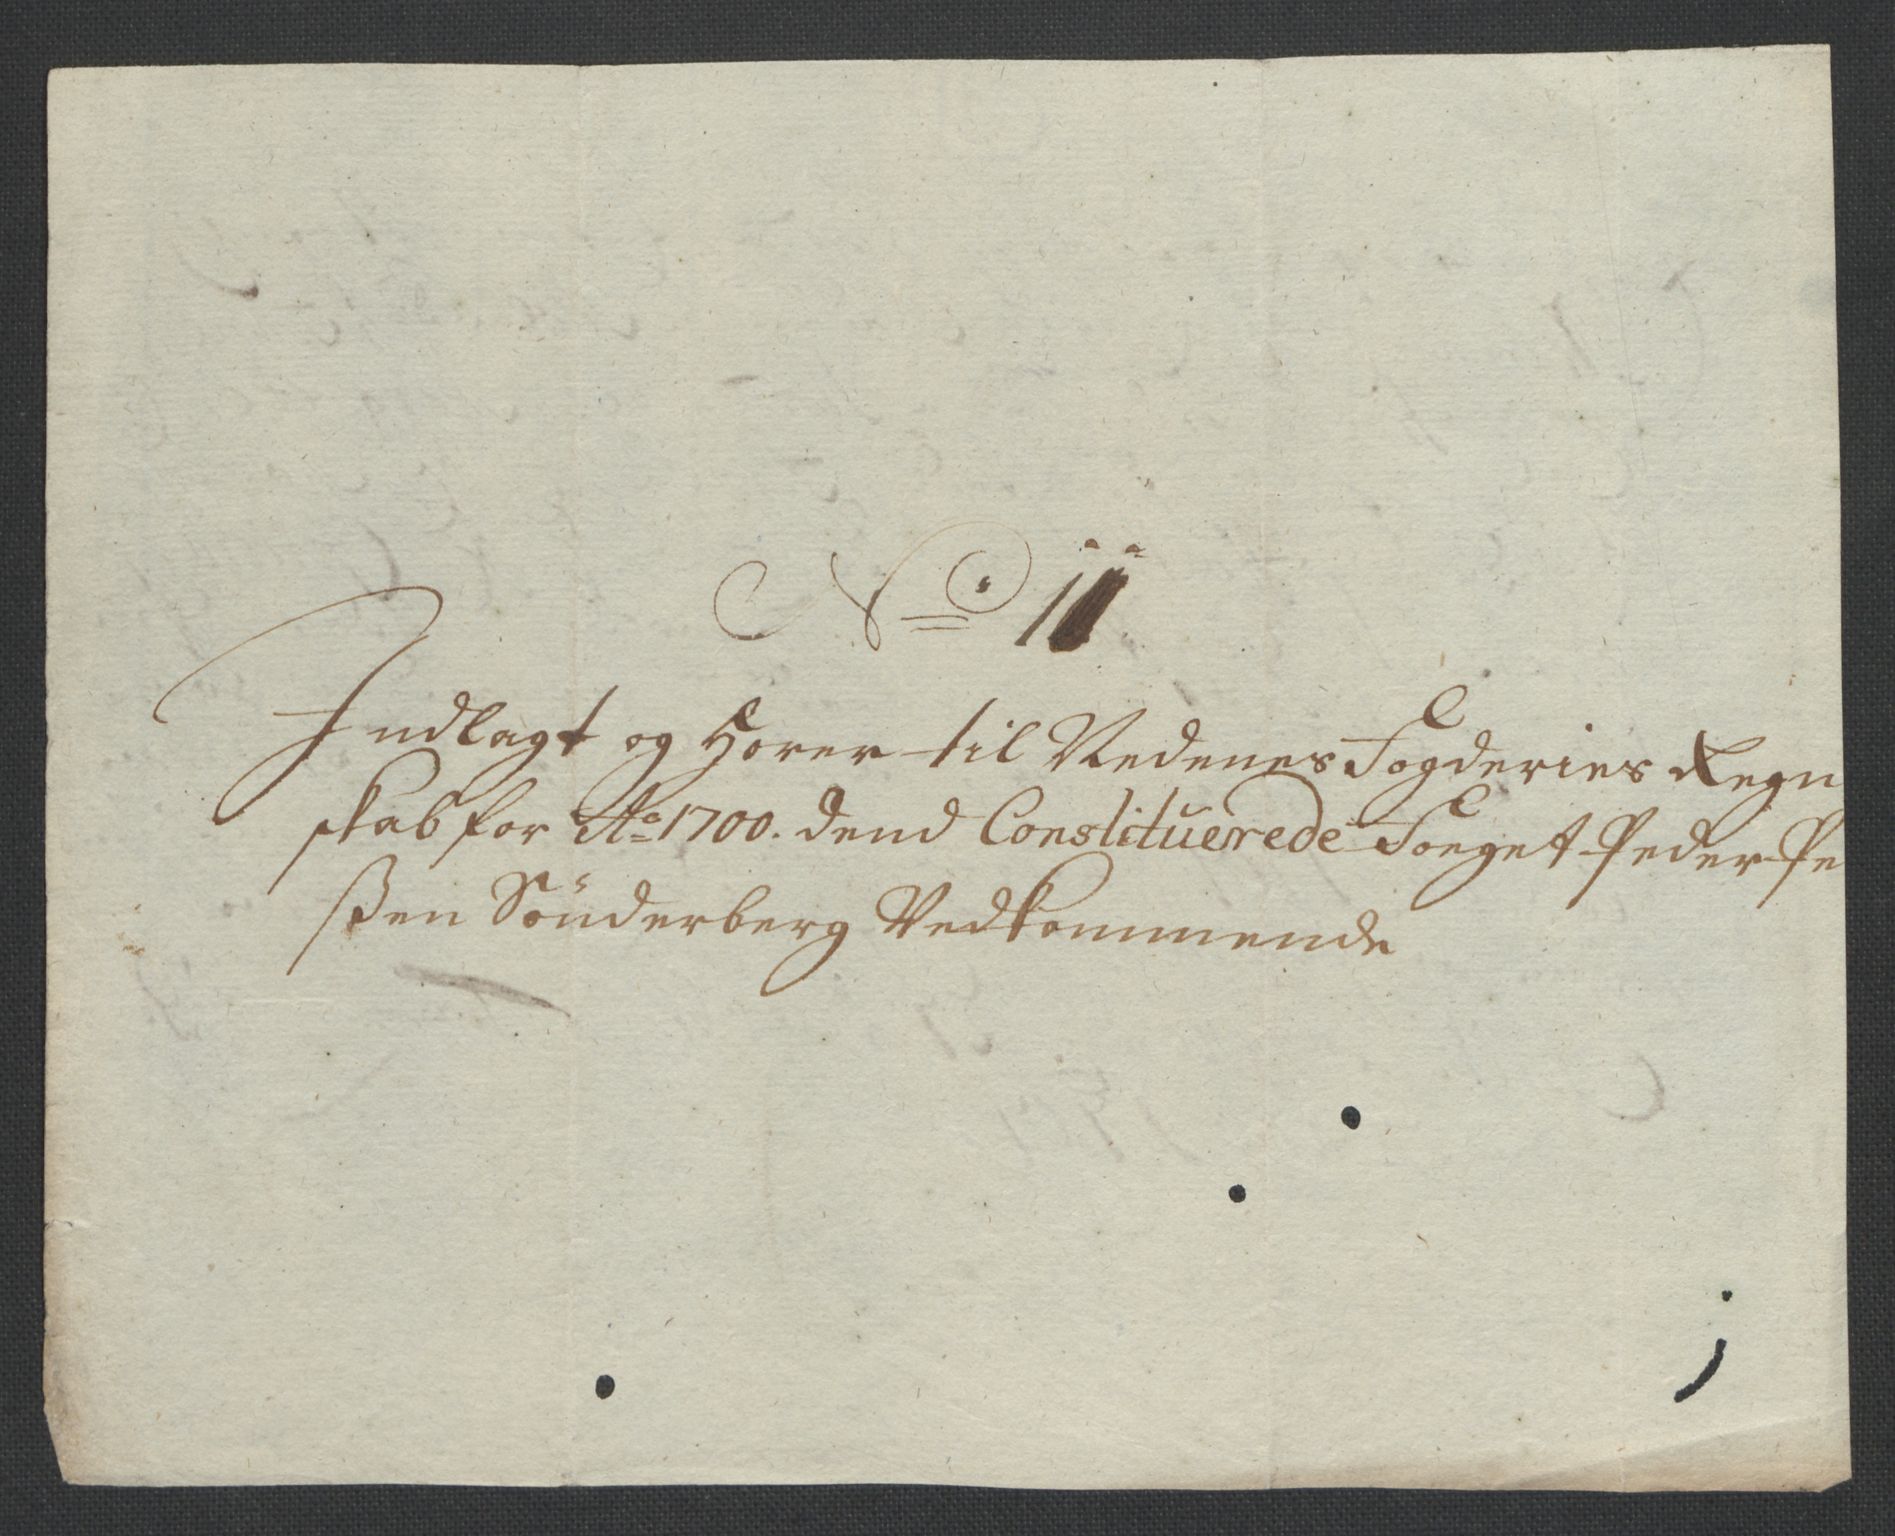 No 11
Indlagt og Hører til Nedenes Fogderies Regn
skab for Ao 1700. dend Constituerede Foeget Peder Pe
ßen Sönderberg Vedkommende